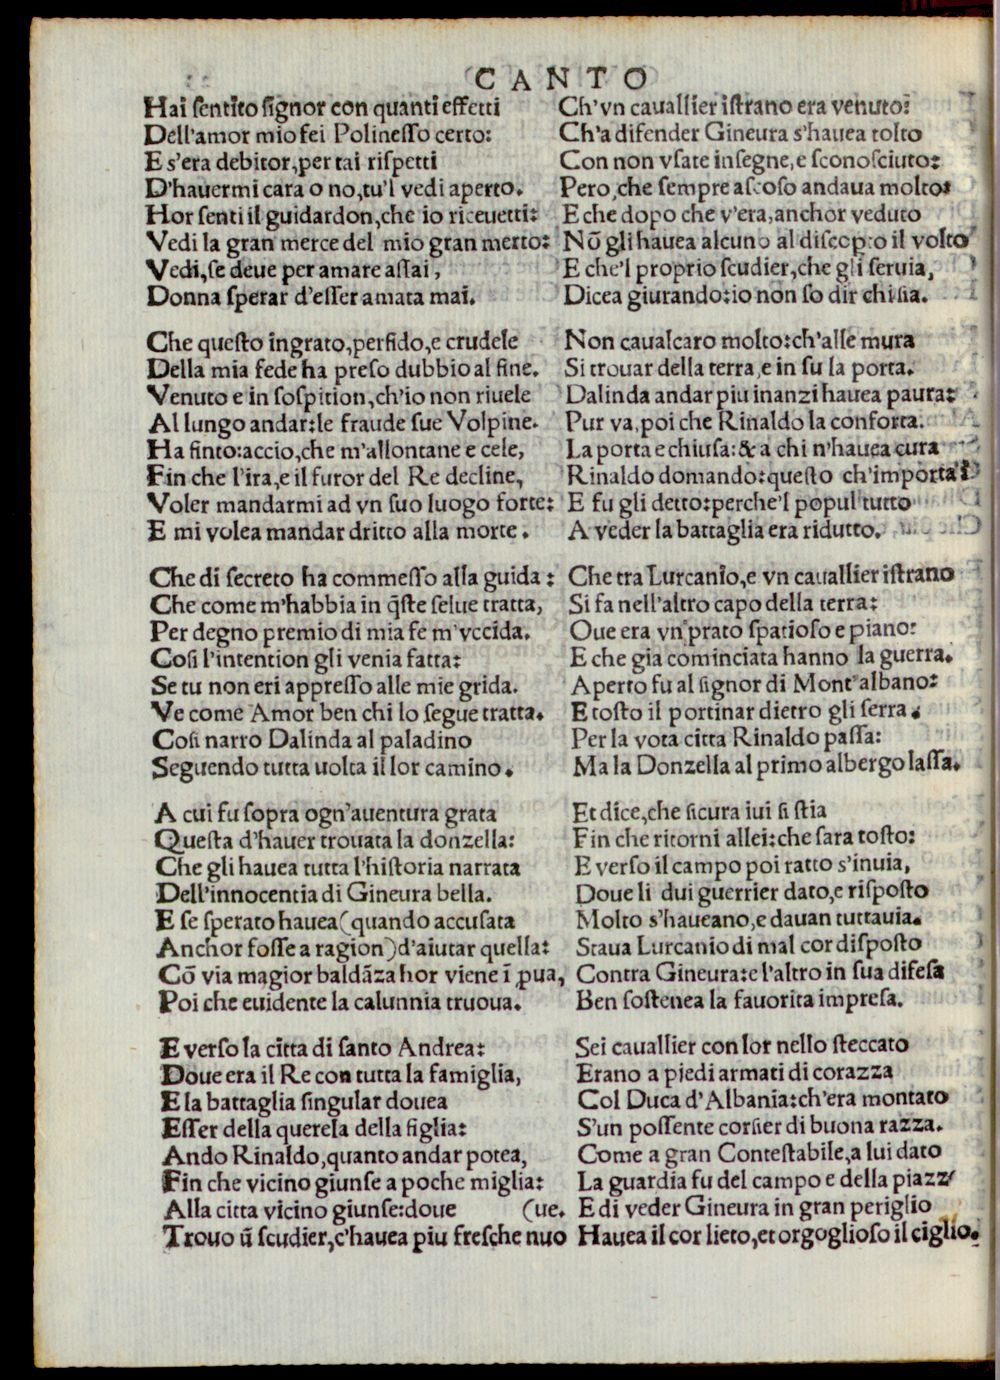 CANTO
Hai sentito signor con quanti effetti
Dell'amor mio fei Polinesso certo:
E s'era debitor, per tai rispetti
D'hauermi cara o no, tu'l vedi aperto.
Hor senti il guidardon, che io riceuetti:
Vedi la gran merce del mio gran merto:
Vedi, se deue per amare assai,
Donna sperar d'esser amata mai.
Che questo ingrato, perfido, e crudele
Della mia fede ha preso dubbio al fine.
Venuto e in sospition, ch'io non riuele
Al lungo andar: le fraude sue Volpine.
Ha finto: accio, che m'allontane e cele,
Fin che l'ira, e il furor del Re decline,
Voler mandarmi ad vn suo luogo forte:
E mi volea mandar dritto alla morte.
Che di secreto ha commesso alla guida:
Che come m'habbia in q̃ste selue tratta,
Per degno premio di mia fe m'vccida.
Cosi l'intention gli venia fatta:
Se tu non eri appresso alle mie grida.
Ve come Amor ben chi lo segue tratta.
Cosi narro Dalinda al paladino
Seguendo tutta uolta il lor camino.
A cui fu sopra ogn'auentura grata
Questa d'hauer trouata la donzella:
Che gli hauea tutta l'historia narrata
Dell'innocentia di Gineura bella.
E se sperato hauea (quando accusata
Anchor fosse a ragion) d'aiutar quella:
Cõ via magior baldãza hor viene ĩ ꝓua,
Poi che euidente la calunnia truoua.
E verso la citta di santo Andrea:
Doue era il Re con tutta la famiglia,
E la battaglia singular douea
Esser della querela della figlia:
Ando Rinaldo, quanto andar potea,
Fin che vicino giunse a poche miglia:
Alla citta vicino giunse: doue (ue.
Trouo ũ scudier, c'hauea piu fresche nuo
Ch'vn cauallier istrano era venuto:
Ch'a difender Gineura s'hauea tolto
Con non vsate insegne, e sconosciuto:
Pero, che sempre ascoso andaua molto:
E che dopo che v'era, anchor veduto
Nõ gli hauea alcuno al discopto il volto
E che'l proprio scudier, che gli seruia,
Dicea giurando: io non so dir chi sia.
Non caualcaro molto: ch'alle mura
Si trouar della terra, e in su la porta.
Dalinda andar piu inanzi hauea paura:
Pur va, poi che Rinaldo la conforta.
La porta e chiusa: & a chi n'hauea cura
Rinaldo domando: questo ch'importa?
E fu gli detto: perche'l popul tutto
A veder la battaglia era ridutto.
Che tra Lurcanio, e vn cauallier istrano
Si fa nell'altro capo della terra:
Oue era vn prato spatioso e piano:
E che gia cominciata hanno la guerra.
Aperto fu al signor di Mont'albano:
E tosto il portinar dietro gli serra.
Per la vota citta Rinaldo passa:
Ma la Donzella al primo albergo lassa.
Et dice, che sicura iui si stia
Fin che ritorni allei: che sara tosto:
E verso il campo poi ratto s'inuia,
Doue li dui guerrier dato, e risposto
Molto s'haueano, e dauan tuttauia.
Staua Lurcanio di mal cor disposto
Contra Gineura: e l'altro in sua difesa
Ben sostenea la fauorita impresa.
Sei cauallier con lor nello steccato
Erano a piedi armati di corazza
Col Duca d'Albania: ch'era montato
S'un possente corsier di buona razza.
Come a gran Contestabile, a lui dato
La guardia fu del campo e della piazz
E di veder Gineura in gran periglio
Hauea il cor lieto, et orgoglioso il ciglio.